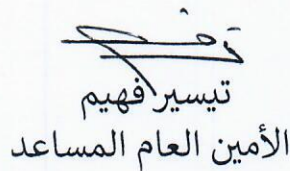 تيسير فهيم
الأمين العام المساعد